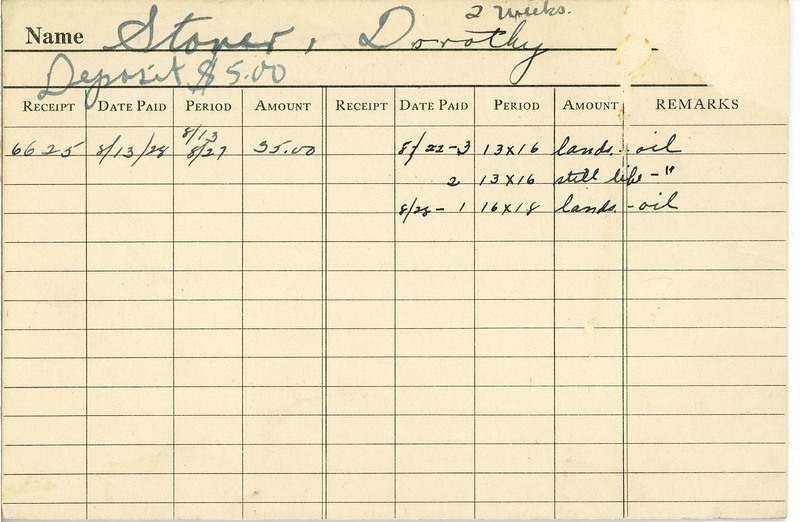 2 Weeks.
Name Stover, Dorothy
Deposit $5.00
RECEIPT DATE PAID PERIOD AMOUNT RECEIPT DATE PAID PERIOD AMOUNT REMARKS
8/13
6625 8/13/28 8/27 35.00 8/22-3 13x16 lands. - oil
2 13x16 still life - "
8/28- 1 16x18 lands. - oil